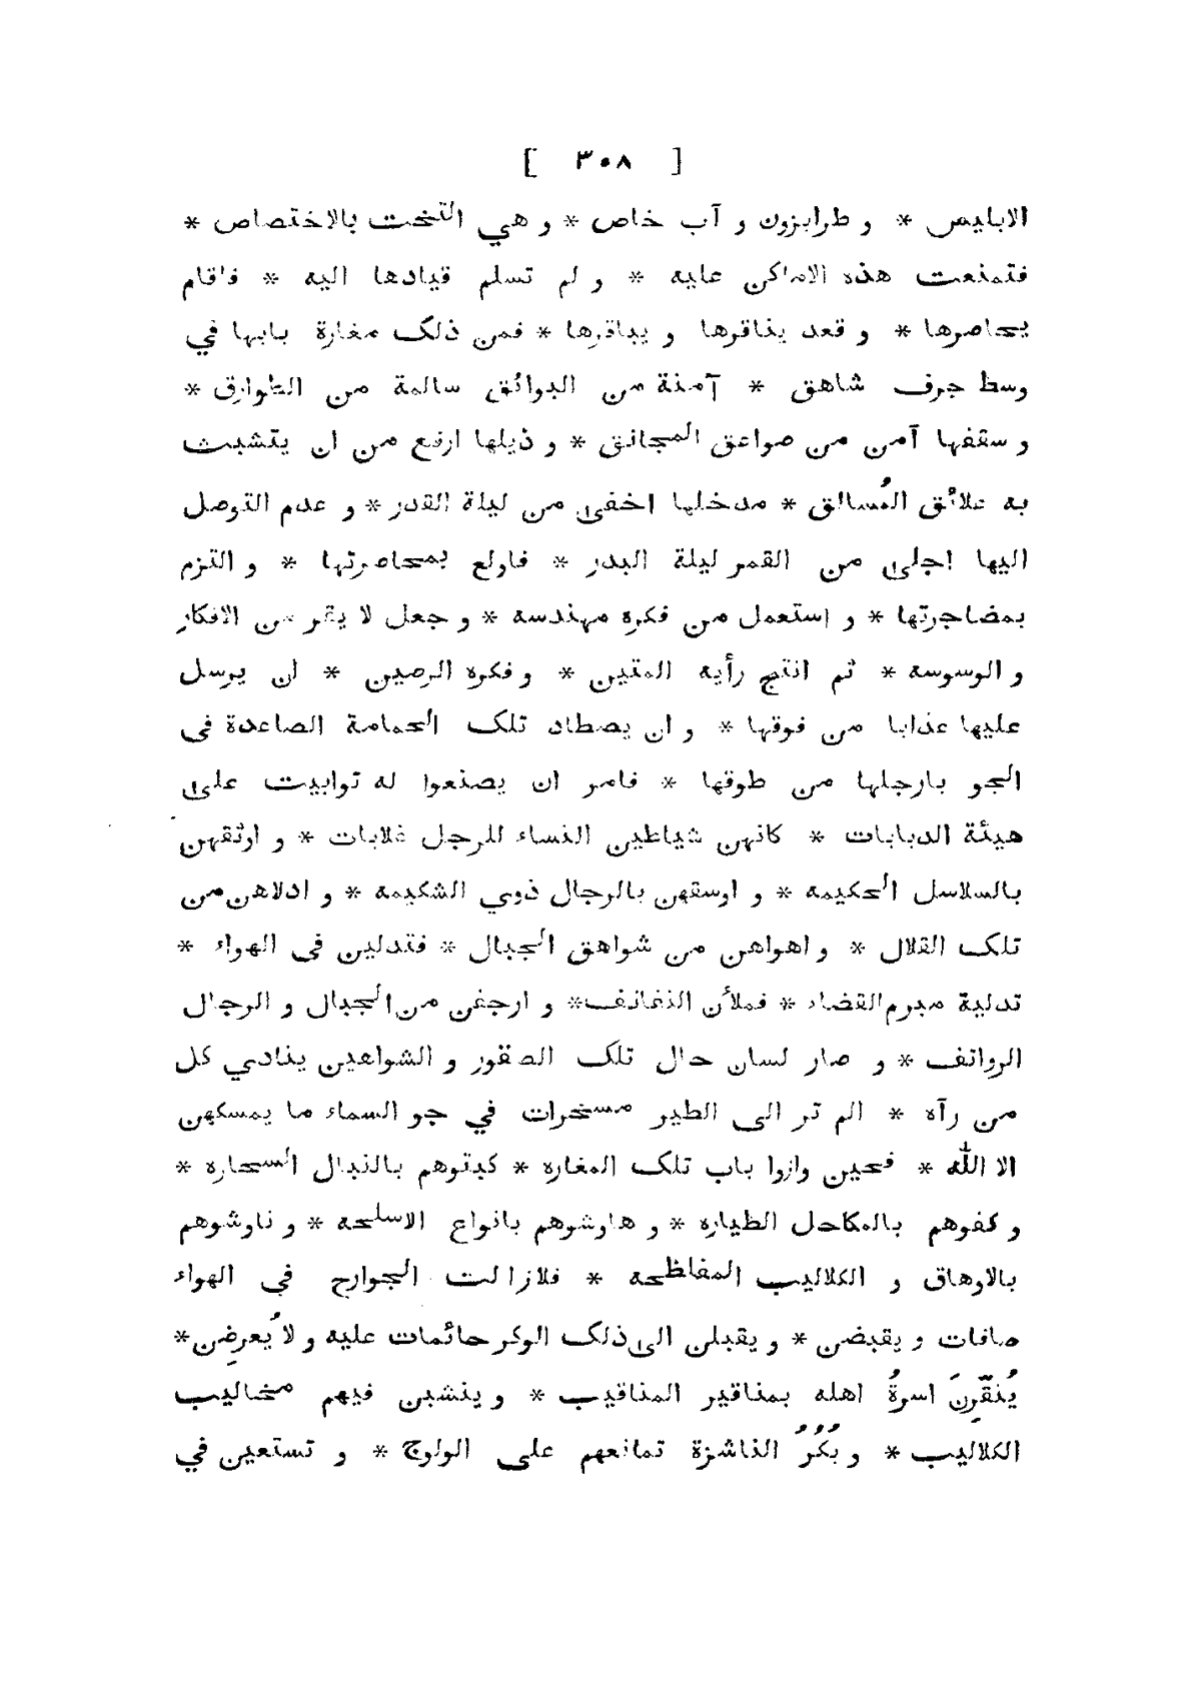 [ ٣٠٨ ]
الابليس * و طرابزون و آب خاص * و هي التخت بالاختصاص *
فتمنعت هذه الاماكن عليه * و لم تسلم قيادها اليه * فاقام
يحاصرها * و قعد يناقرها و يباقرها * فمن ذلک مغارة بابها في
وسط جرف شاهق * آمنة من البوائق سالمة من الطوارق *
و سقفها آمن من صواعق المجانق * و ذيلها ارفع من ان يتشبث
به علائق المُسالق * مدخلها اخفى من ليلة القدر * و عدم التوصل
اليها اجلى من القمر ليلة البدر * فاولع بمحاصرتها * و التزم
بمضاجرتها * و استعمل من فكره مهندسه * و جعل لا يقر من الافكار
و الوسوسه * ثم انتج رأيه المتين * و فكره الرصين * ان يرسل
عليها عذابا من فوقها * و ان يصطاد تلک الحمامة الصاعدة فى
الجو بارجلها من طوقها * فامر ان يصنعوا له توابيت على
هيئة الدبابات * كانهن شياطين النساء للرجل غلابات * و اوثقهن
بالسلاسل الحكيمه * و اوسقهن بالرجال ذوي الشكيمه * و ادلاهن من
تلک القلال * و اهواهن من شواهق الجبال * فتدلين فى الهواء *
تدلية مبرم القضاء * فملأن النغانف * و ارجفن من الجبال و الرجال
الروانف * و صار لسان حال تلک الصقور و الشواهين ينادي كل
من رآه * الم تر الى الطير مسخرات في جو السماء ما يمسكهن
الا الله * فحين وازوا باب تلک المغاره * كبتوهم بالنبال السحاره *
و كفوهم بالمكاحل الطياره * و هاوشوهم بانواع الاسلحه * و ناوشوهم
بالاوهاق و الكلاليب المفلطحه * فلازالت الجوارح في الهواء
صافات و يقبضن * و يقبلن الى ذلک الوكر حائمات عليه و لا يُعرِضن *
يُنقِّرنَ اسرةُ اهله بمناقير المناقيب * و ينشبن فيهم مخاليب
الكلاليب * و بُكُرُ الناشزة تمانعهم على الولوج * و تستعين في